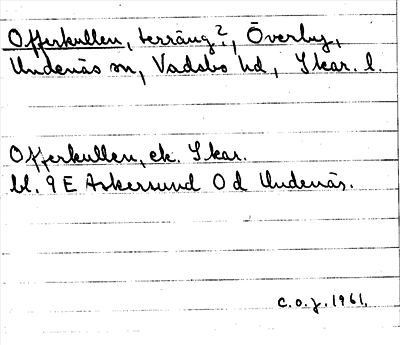 Offerkullen, terräng?, Överby,
Undenäs sn, Vadsbo hd, Skar. l.
Offerkullen, ek. Skar.
bl. 9E Askersund 0 d Undenäs.
C.O.J. 1961.